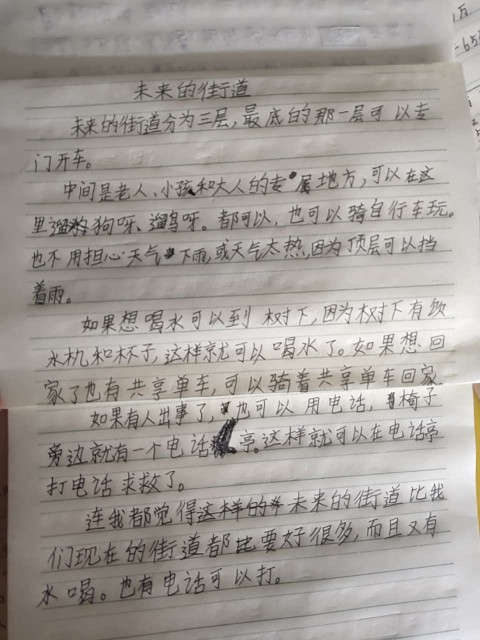 未来的街道
未来的街道分为三层,最底的那一层可以专
门开车。
中间是老人、小孩和大人的专属地方,可以在这
里遛狗呀、遛鸟呀。都可以,也可以骑自行车玩。
也不用担心天气下雨,或天气太热,因为顶层可以挡
着雨。
如果想喝水可以到树下,因为树下有饮
水机和杯子,这样就可以喝水了。如果想回
家了也有共享单车,可以骑着共享单车回家
如果有人出事了,也可以用电话,椅子
旁边就有一个电话亭。这样就可以在电话亭
打电话求救了。
连我都觉得这样的未来的街道比我
们现在的街道都比要好很多,而且又有
水喝。也有电话可以打。
1万
-65